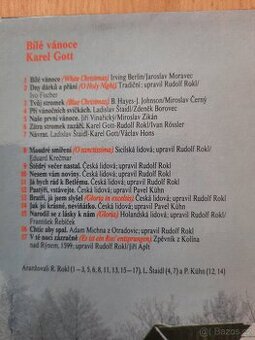 Bílé vánoce
Karel Gott
1 Bílé vánoce (White Christmas) Irving Berlin/Jaroslav Moravec
2 Dny dárků a přání (O Holy Night) Tradiční; upravil Rudolf Rokl/
Ivo Fischer
3 Tvůj stromek (Blue Christmas) B. Hayes-J. Johnson/Miroslav Černý
4 Při vánočních svíčkách. Ladislav Štaidl/Zdeněk Borovec
5 Naše první vánoce. Jiří Vinařický/Miroslav Zikán
6 Zátra stromek rozzáří. Karel Gott-Rudolf Rokl/Ivan Rössler
7 Návrat. Ladislav Štaidl-Karel Gott/Václav Hons
8 Moudré smíření (O sanctissima) Sicilská lidová; upravil Rudolf Rokl/
Eduard Krečmar
9 Štědrý večer nastal. Česká lidová; upravil Rudolf Rokl
10 Nesem vám noviny. Česká lidová; upravil Rudolf Rokl
11 Já bych rád k Betlému. Česká lidová; upravil Rudolf Rokl
12 Pastýři, vstávejte. Česká lidová; upravil Pavel Kühn
13 Bratři, já jsem slyšel (Gloria in excelsis) Česká lidová; upravil Rudolf Rokl
14 Jak jsi krásné, neviňátko. Česká lidová; upravil Pavel Kühn
15 Narodil se z lásky k nám (Gloria) Holandská lidová; upravil Rudolf Rokl/
František Řebíček
16 Chtíc aby spal. Adam Michna z Otradovic; upravil Rudolf Rokl
17 V té noci zázračné (Es ist ein Ros' entsprungen) Zpěvník z Kolína
nad Rýnem, 1599; upravil Rudolf Rokl/Jiří Aplt
Aranžovali R. Rokl (1-3, 5, 6, 8, 11, 13, 15-17), L. Štaidl (4, 7) a P. Kühn (12, 14)